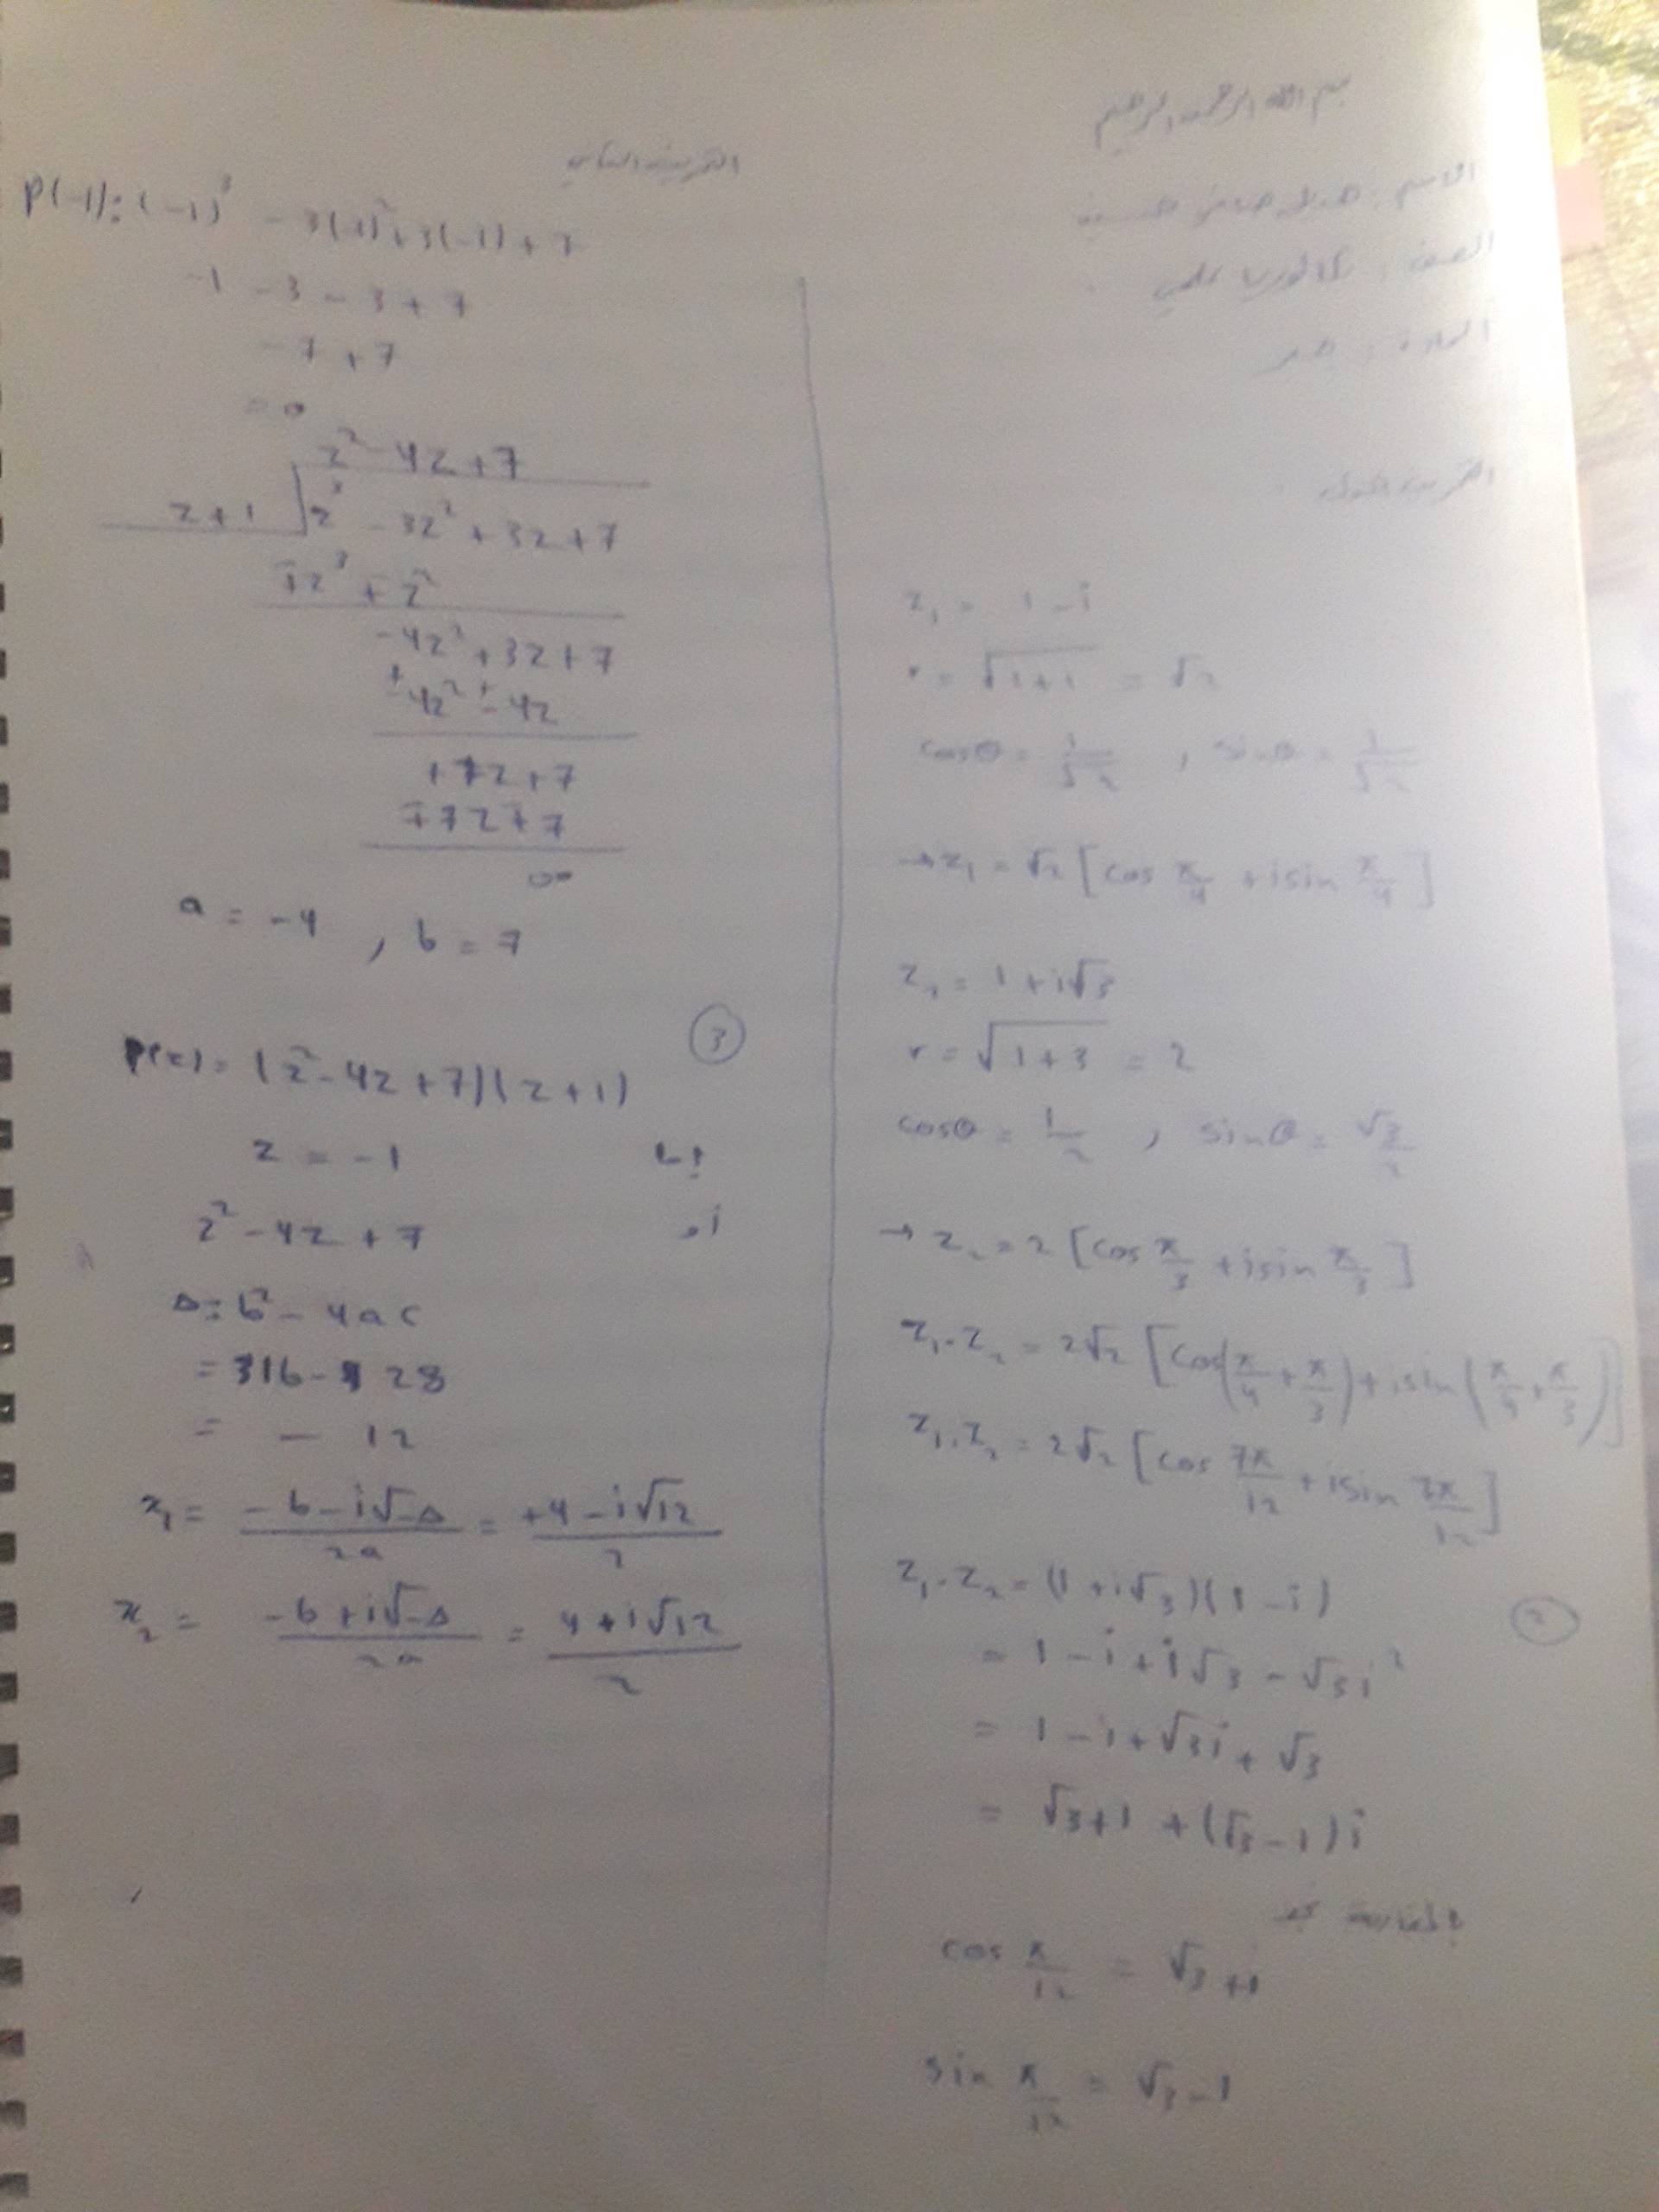 بسم الله الرحمن الرحيم
الاسم :
الصف : بكالوريا علمي
المادة : جبر
التمرين الأول
z₁ = 1 - i
r = √(1+1) = √2
cosθ = 1/√2 , sinθ = 1/√2
→ z₁ = √2 [cos π/4 + i sin π/4]
z₂ = 1 + i√3
r = √(1+3) = 2
cosθ = 1/2 , sinθ = √3/2
→ z₂ = 2 [cos π/3 + i sin π/3]
z₁.z₂ = 2√2 [cos(π/4 + π/3) + i sin(π/4 + π/3)]
z₁.z₂ = 2√2 [cos 7π/12 + i sin 7π/12]
z₁.z₂ = (1 + i√3)(1 - i) ②
= 1 - i + i√3 - √3i²
= 1 - i + √3i + √3
= √3+1 + (√3-1)i
بالمقارنة نجد
cos π/12 = √3+1
sin π/12 = √3-1
التمرين الثاني
P(-1): (-1)³ - 3(-1)² + 3(-1) + 7
-1 - 3 - 3 + 7
-7 + 7
= 0
z² - 4z + 7
z+1 z³ - 3z² + 3z + 7
∓z³ ∓ z²
-4z² + 3z + 7
±4z² ± 4z
+7z + 7
∓7z ∓ 7
00
a = -4 , b = 7
③
P(z) = (z² - 4z + 7)(z + 1)
z = -1 إما
z² - 4z + 7 أو
Δ = b² - 4ac
= 16 - 28
= - 12
z₁ = (-b - i√-Δ)/2a = (+4 - i√12)/2
z₂ = (-b + i√-Δ)/2a = (4 + i√12)/2